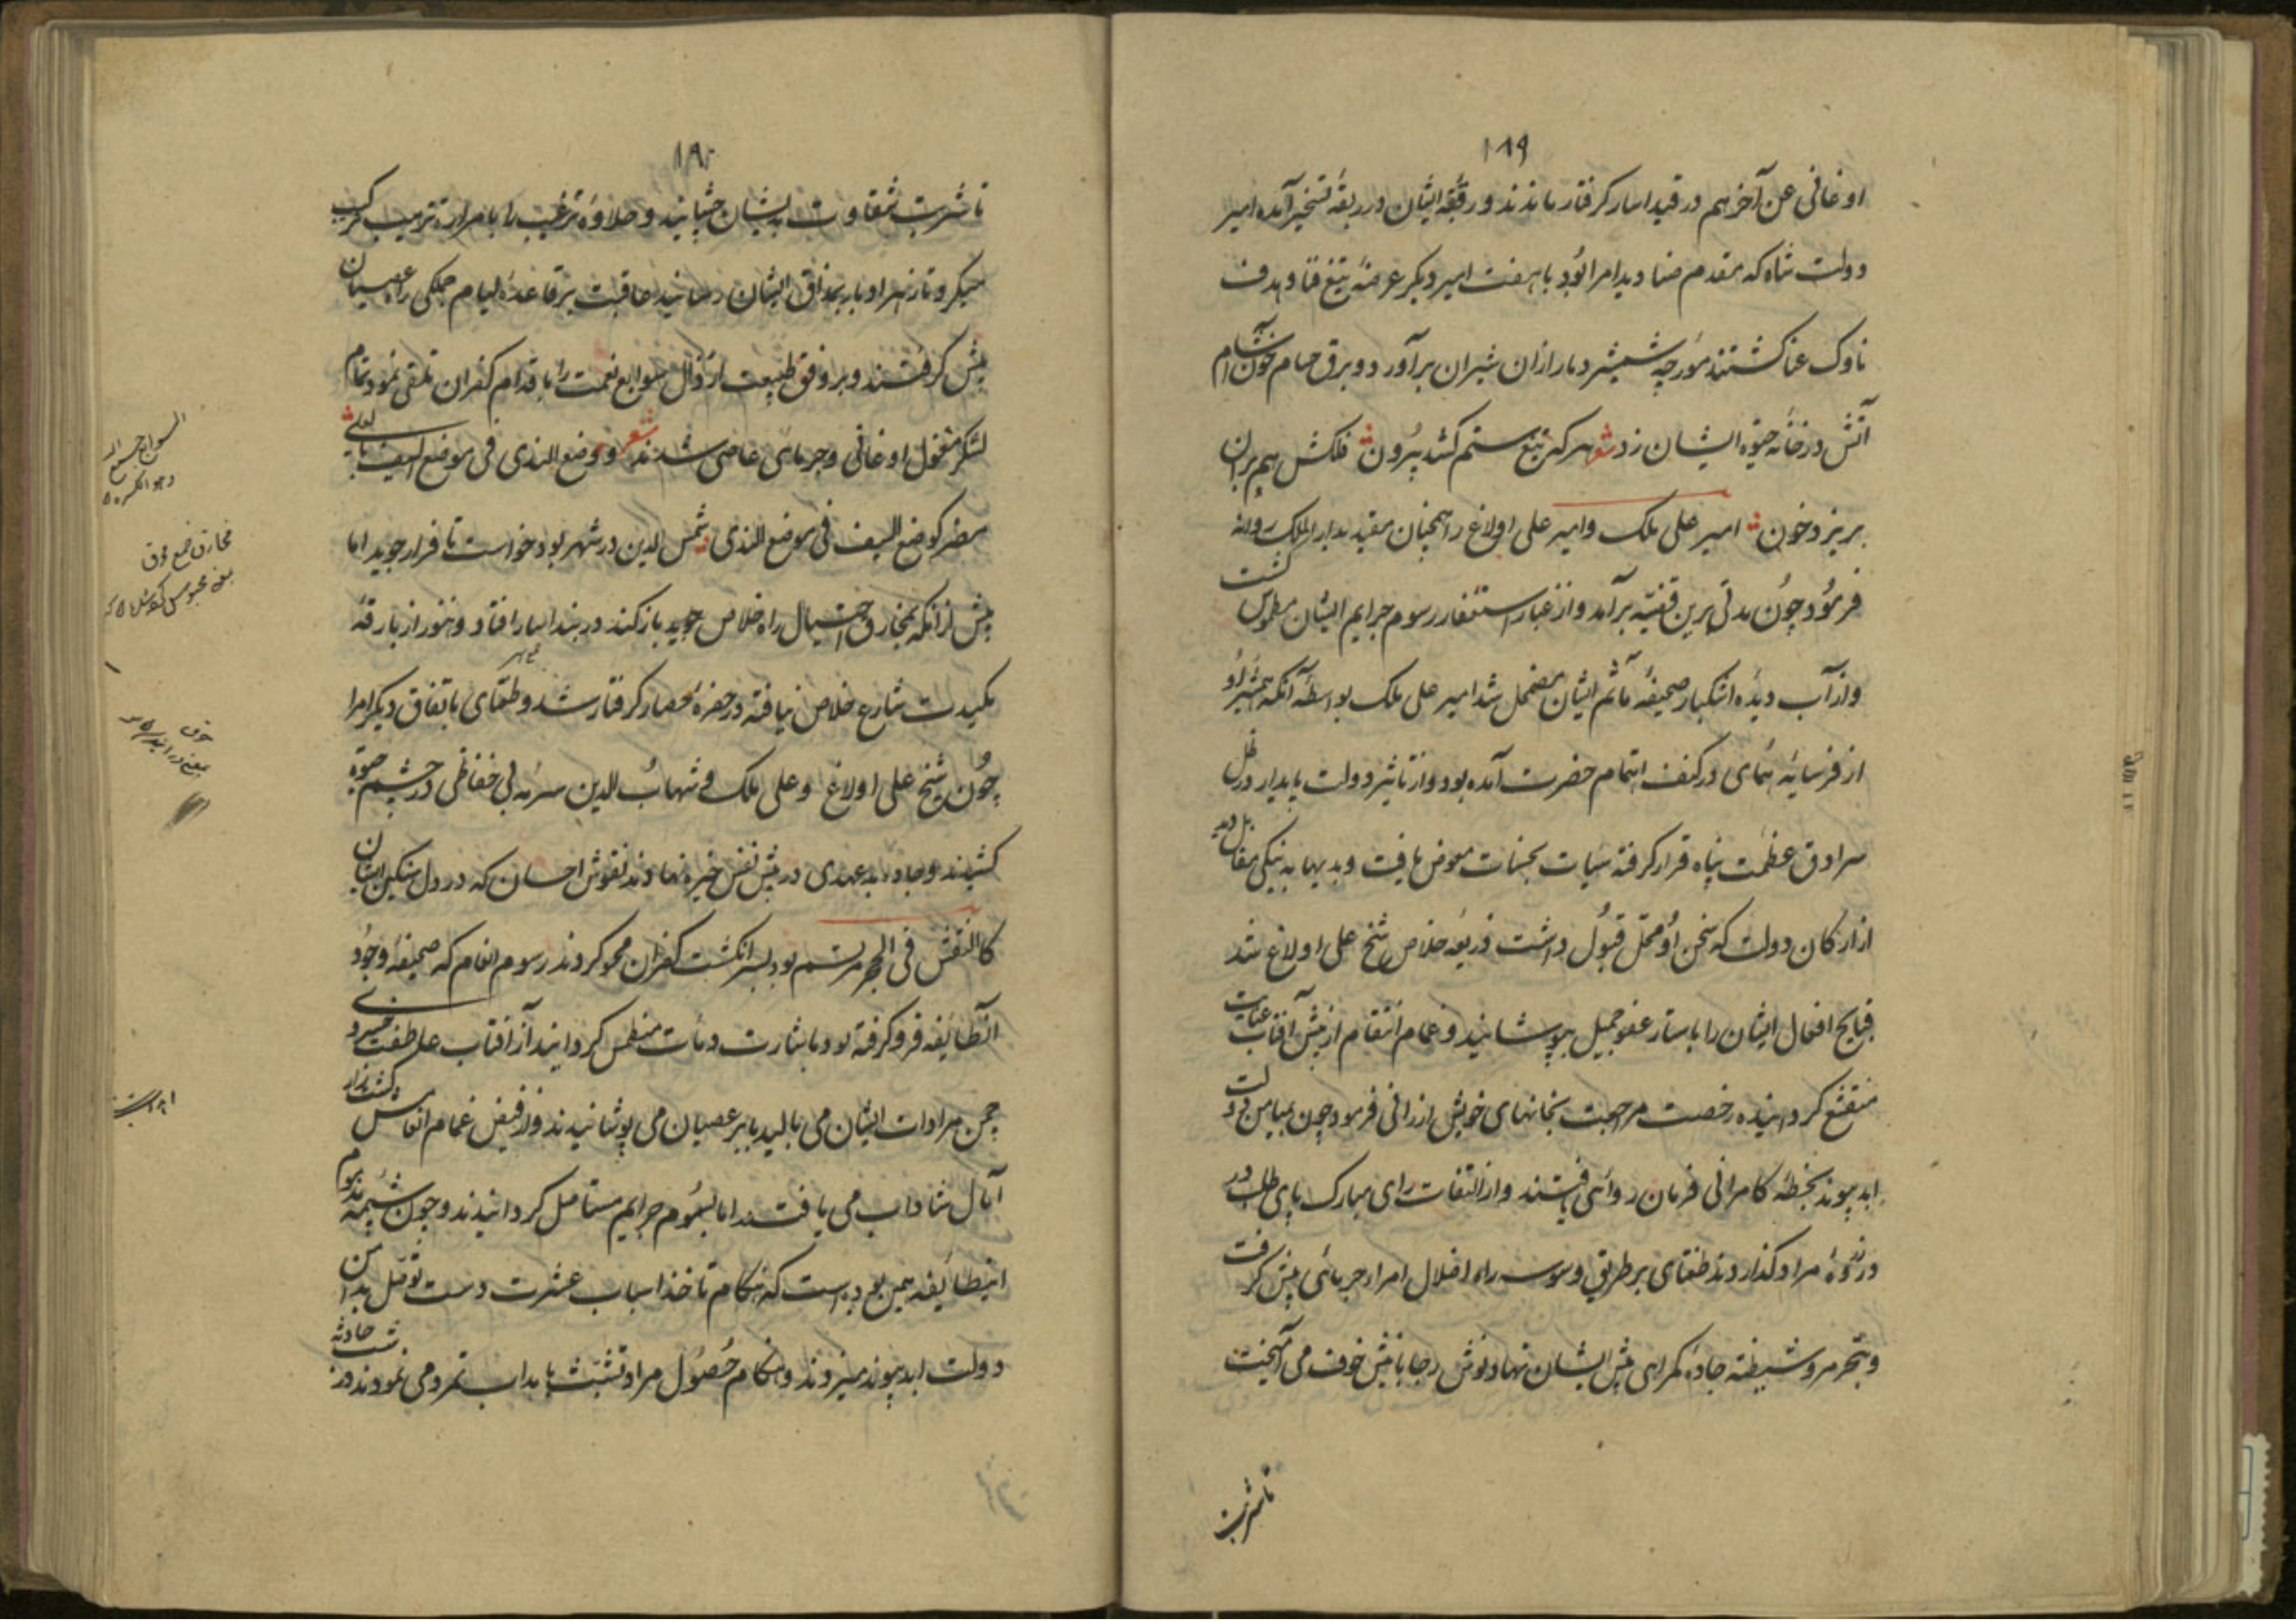 ۱۸۹
اوغانی عن آخرهم در قید اسار گرفتار ماندند و رقبهٔ ایشان در ربقهٔ تسخیر آمده امیر
دولت شاه که مقدم صنادید امرا بود با هفت امیر دیگر عرضهٔ تیغ فنا و هدف
ناوک عنا گشتند مورچهٔ شمشیر دمار از ان شیران برآورد و برق حسام خون آشام
آتش در خانهٔ حیوة ایشان زد شعر هر که تیغ ستم کشد بیرون فلکش هم بدان
بریزد خون امیر علی ملک و امیر علی اولاغ را همچنان مقید بدار الملک روانه
فرمود چون مدتی برین قضیه برآمد و از غبار استغفار رسوم جرایم ایشان مطموس گشت
و از آب دیده اشکبار صحیفهٔ مآثم ایشان مضمحل شد امیر علی ملک بواسطهٔ آنکه همشیرهٔ او
از فر سایهٔ همای در کنف اهتمام حضرت آمده بود و از تاثیر دولت پایدار در ظل
سرادق عظمت پناه قرار گرفته سیات بحسنات معوض یافت و بدیها به نیکی مقابل دید
از ارکان دولت که سخن او محل قبول داشت ذریعهٔ خلاص شیخ علی اولاغ شد
قبایح افعال ایشان را باستار عفو جمیل بپوشانید و غمام انتقام از پیش آفتاب عنایت
منقشع گردانیده رخصت مراجعت بخانهای خویش ارزانی فرمود چون بمیامن دولت
ابد پیوند بخطهٔ کامرانی فرمان روائی یافتند و از التفات رای مبارک پای طلب در
در ذروهٔ مراد گذاردند طغتای بر طریق وسوسه راه اضلال امرا جرمائی پیش گرفت
و بتجر مر و شیطنه جادهٔ گمراهی پیش ایشان نهاد و نوش رجا با نیش خوف می آمیخت
تا شربت
۱۹۰
تا شربت شقاوت بدیشان چشانید و حلاوهٔ ترغیب را با مرارهٔ ترهیب مرکب
میکرد تا زهر ادبار بمذاق ایشان رسانید عاقبت بر قاعدهٔ لیام جملگی راه عصیان
پیش گرفتند و بر وفق طبیعت ارذال سوابغ نعمت را باقدام کفران تلقی نمود تمام
لشکر مغول اوغانی و جرمائی عاصی شدند شعر و وضع الندی فی موضع السیف بالعلی
مضر کوضع السیف فی موضع الندی شمس الدین در شهر بود خواست تا فرار جوید اما
پیش از انکه بمخاریق احتیال راه خلاص جوید باز کنند در بند اسار افتاد و هنوز از بارقهٔ
مکیدت شارع خلاص نیافته در حفرهٔ حصار گرفتار شد و طغتای باتفاق دیگر امرا
چون شیخ علی اولاغ و علی ملک و شهاب الدین سرمهٔ بی حفاظی در چشم حیوة
کشیدند و جاده بدعهدی در پیش نفس خیره نهادند نقوش احسان که در دل سنگین ایشان
کالنقش فی الحجر مرتسم بود بسر انگشت کفران محو کردند رسوم انعام که صحیفهٔ وجود
آنطایفه فرو گرفته بود منطمس گردانید از آفتاب عاطفت خسروی
چمن مرادات ایشان می بالید بابر عصیان می پوشانیدند و از فیض غمام انفاس کشت زار
آمال شاداب می یافتند اما بسموم جرایم مستاصل گردانیدند و چون شیمهٔ مذموم
اینطایفه همین بوده است که هنگام تاخذ اسباب عشرت دست توسل بدامن
دولت ابد پیوند میزدند و هنگام حصول مراد تشبث باهداب تمرد می نمودند در حادثه